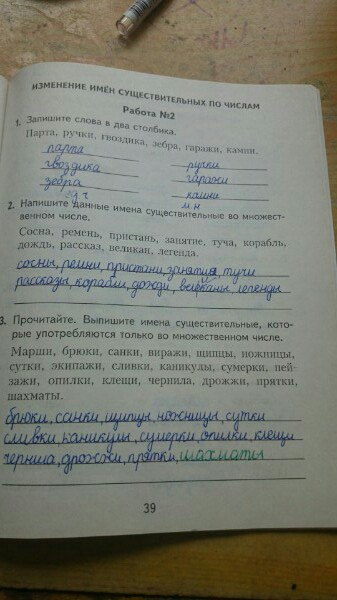 ИЗМЕНЕНИЕ ИМЁН СУЩЕСТВИТЕЛЬНЫХ ПО ЧИСЛАМ
Работа №2
1. Запишите слова в два столбика.
Парта, ручки, гвоздика, зебра, гаражи, камни.
парта
гвоздика ручки
зебра гаражи
ед ч камни
м н
2. Напишите данные имена существительные во множест-
венном числе.
Сосна, ремень, пристань, занятие, туча, корабль,
дождь, рассказ, великан, легенда.
сосны, ремни, пристани, занятия, тучи
рассказы, корабли, дожди, великаны, легенды
3. Прочитайте. Выпишите имена существительные, кото-
рые употребляются только во множественном числе.
Марши, брюки, санки, виражи, щипцы, ножницы,
сутки, экипажи, сливки, каникулы, сумерки, пей-
зажи, опилки, клещи, чернила, дрожжи, прятки,
шахматы.
брюки, санки, щипцы, ножницы, сутки
сливки, каникулы, сумерки, опилки, клещи
чернила, дрожжи, прятки, шахматы
39